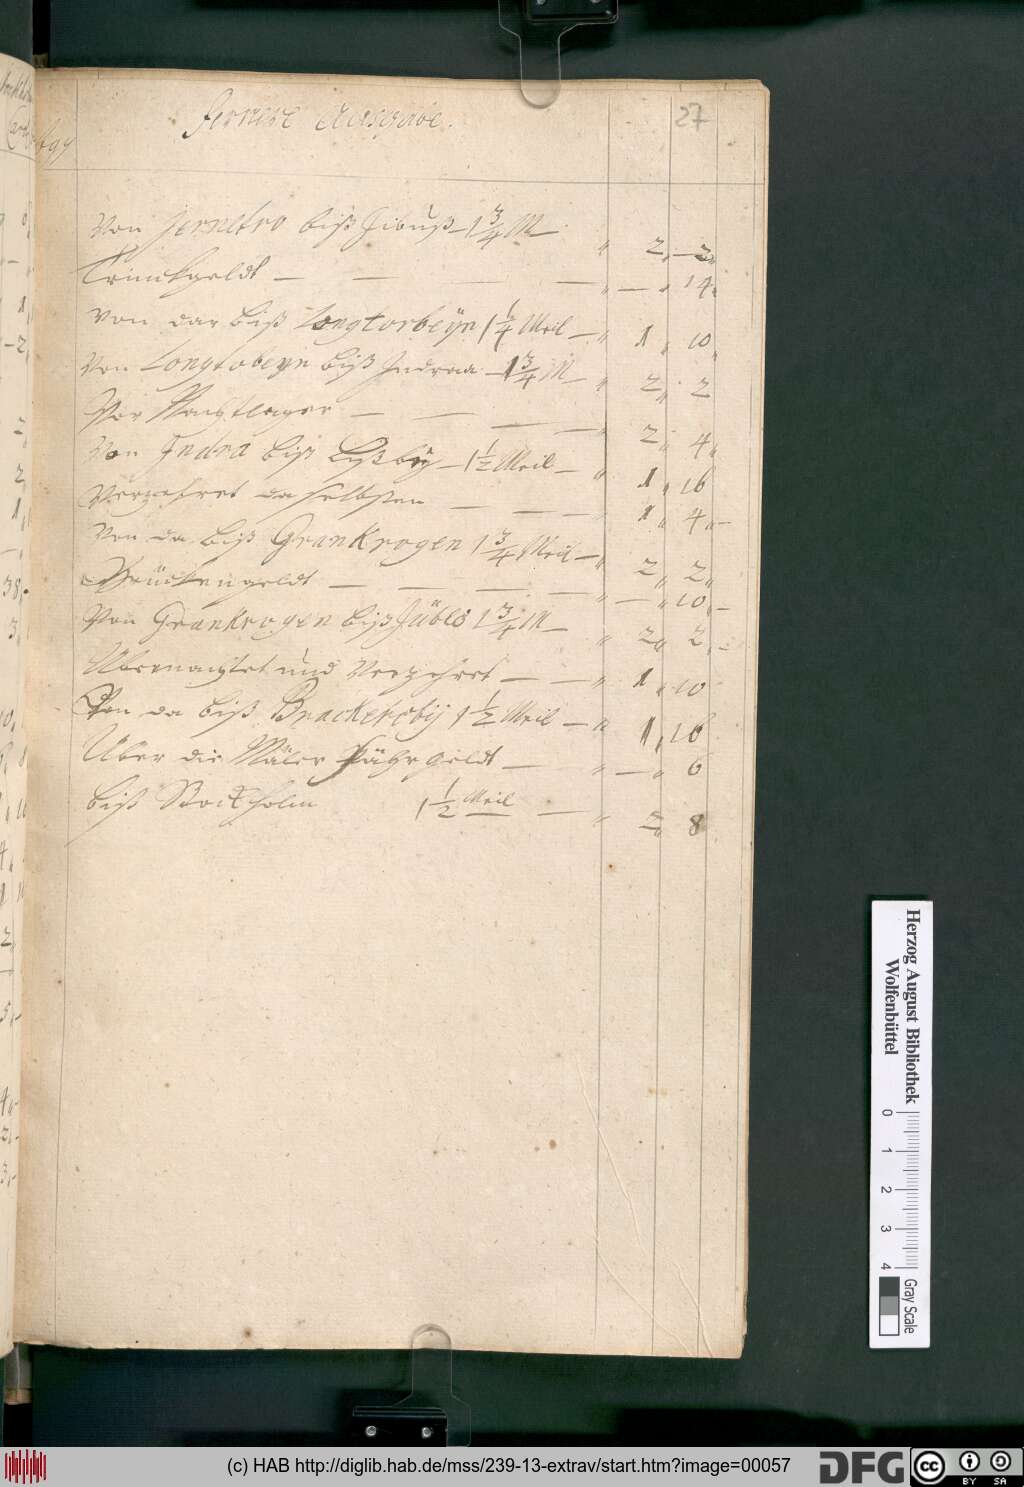 fernere Ausgabe.
27
Von Jernebro biß Zibuß – 1 3/4 M – " 2 „ – 2 „
Trinckgeldt — — — — " — „ 14 „
Von dar biß Longtorbeÿn 1 1/4 Meil – " 1 „ 10 „
Von Longtobeyn biß Indraa – 1 3/4 M – " 2 „ 2
Vor Nachtlager — — — — " 2 „ 4 „
Von Indra biß Lißbÿ – 1 1/2 Meil – " 1 „ 16
Verzehret daselbsten — — — " 1 „ 4 „ –
Von da biß Grankrogen 1 3/4 Meil – " 2 „ 2 „
Brückengeldt — — — — " — „ 10 „ –
Von Grankrogen biß Jübls 1 3/4 M – " 2 „ 2 „
Übernachtet und Verzehret — — " 1 „ 10
Von da biß Brackerbÿ 1 1/2 Meil – " 1 „ 16
Über die Mäler Fährgeldt — — " — „ 6
biß Stockholm 1 1/2 Meil — " 2 „ 8
Herzog August Bibliothek
Wolfenbüttel
0 1 2 3 4
Gray Scale
(c) HAB http://diglib.hab.de/mss/239-13-extrav/start.htm?image=00057
DFG
cc BY SA